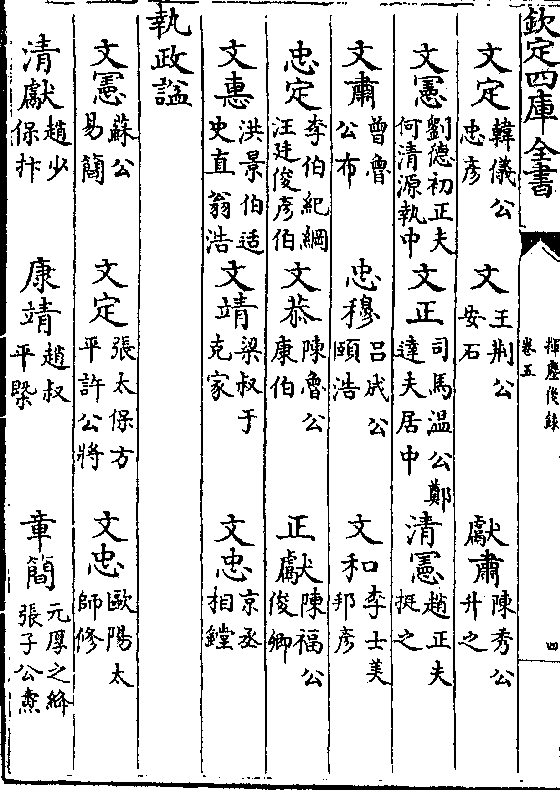 欽定四庫全書
揮麈後錄
卷五
四
文定韓儀公忠彥 文王荆公安石 獻肅陳秀公升之
文憲劉德初正夫何清源執中 文正司馬温公鄭達夫居中 清憲趙正夫挺之
文肅曾魯公布 忠穆吕成公頤浩 文和李士美邦彥
忠定李伯紀綱汪廷俊彥伯 文恭陳魯公康伯 正獻陳福公俊卿
文惠洪景伯适史直翁浩 文靖梁叔子克家 文忠京丞相鏜
執政諡
文憲蘇公易簡 文定張太保方平許公將 文忠歐陽太師修
清獻趙少保抃 康靖趙叔平槩 章簡元厚之絳張子公燾